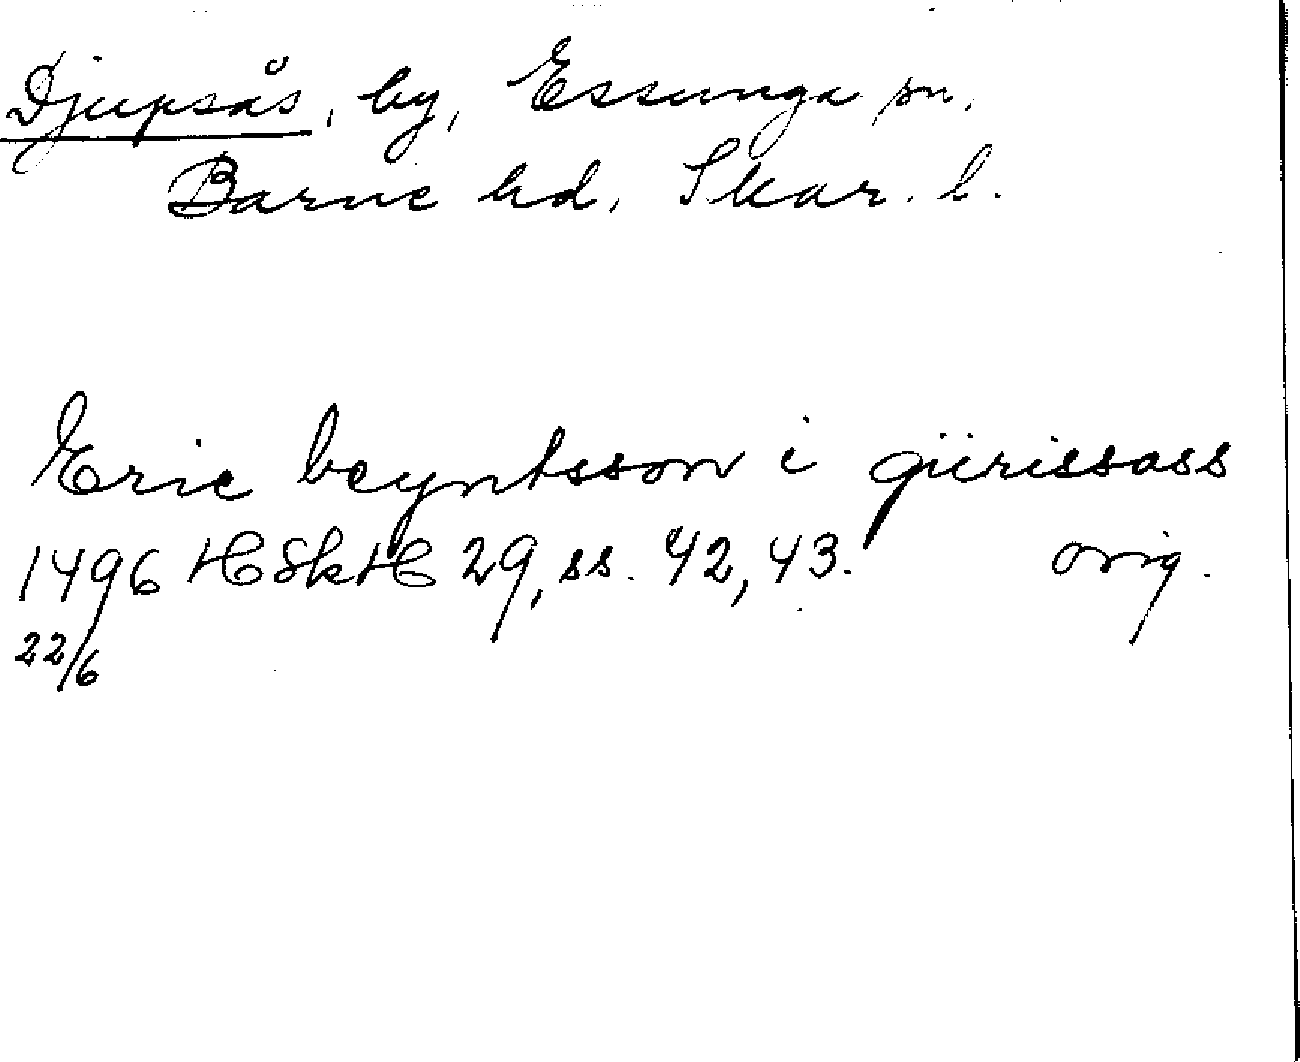 Djupsås, by, Essunga sn,
Barne hd, Skar. l.
Eric beyntsson i gürissass
1496 HSkH 29, ss. 42, 43. orig.
22/6